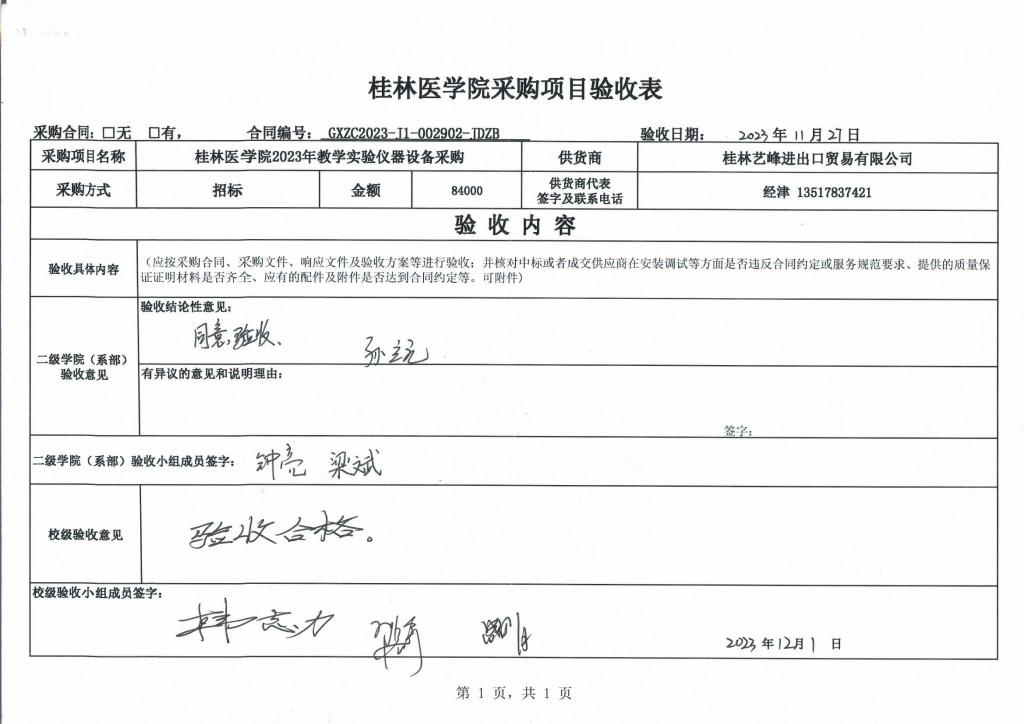 桂林医学院采购项目验收表
采购合同：□无 □有， 合同编号： GXZC2023-J1-002902-JDZB 验收日期： 2023 年 11 月 27 日
采购项目名称 桂林医学院2023年教学实验仪器设备采购 供货商 桂林艺峰进出口贸易有限公司
采购方式 招标 金额 84000 供货商代表
签字及联系电话 经津 13517837421
验 收 内 容
验收具体内容 （应按采购合同、采购文件、响应文件及验收方案等进行验收；并核对中标或者成交供应商在安装调试等方面是否违反合同约定或服务规范要求、提供的质量保
证证明材料是否齐全、应有的配件及附件是否达到合同约定等。可附件）
二级学院（系部）
验收意见
验收结论性意见：
同意验收、
孙立元
有异议的意见和说明理由：
签字：
二级学院（系部）验收小组成员签字： 钟亮 梁斌
校级验收意见 验收合格。
校级验收小组成员签字：
韩志力
2023 年 12 月 1 日
第 1 页，共 1 页